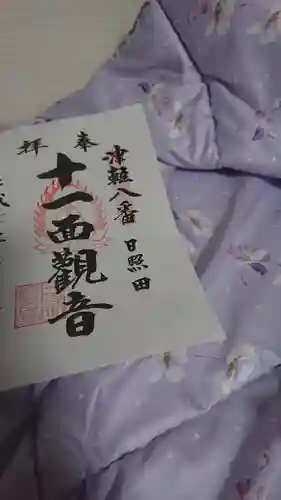 津軽八番 日照田
奉
拝
十一面觀音